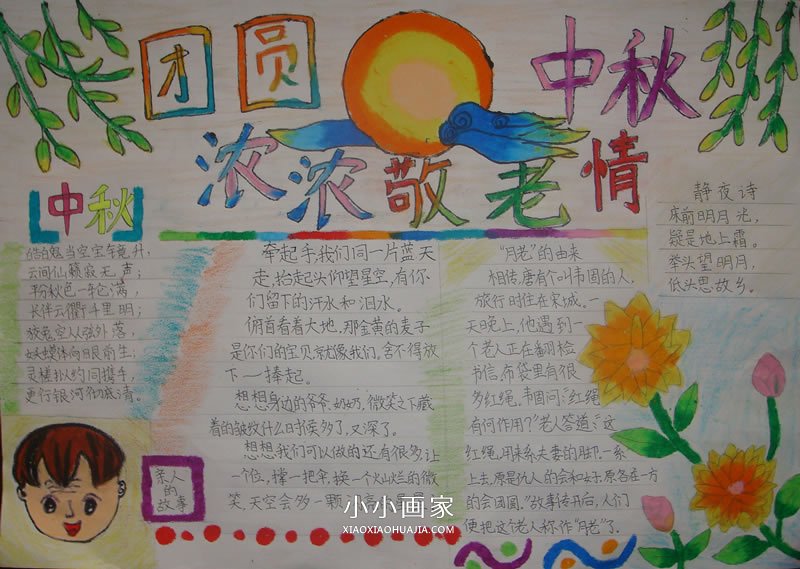 团圆
中秋
浓浓敬老情
中秋
皓魄当空宝镜升,
云间仙籁寂无声;
平份秋色一轮满,
长伴云衢千里明;
从弦外落,
眼前生;
灵槎拟约同携手,
更行银河彻底清。
牵起手,我们同一片蓝天
走,抬起头仰望星空,有你
们留下的汗水和泪水。
俯首看着大地,那金黄的麦子
是你们的宝贝就像我们,舍不得放
下一捧起。
想想身边的爷爷、奶奶,微笑之下藏
着的皱纹什么时候多了,又深了。
想想我们可以做的还有很多让
一个位,撑一把伞,换一个火山烂的微
笑,天空会多一颗
亲人
的
故事
"月老"的由来
相传,唐有个叫韦固的人,
旅行时住在宋城。一
天晚上,他遇到一
个老人正在翻检
书信,布袋里有很
多红绳,韦固问:"红绳
有何作用?"老人答道:"这
红绳,用来系夫妻的脚,一系
上去,原是仇人的会和好,原各在一方
的会团圆。"故事传开后,人们
便把这个老人称作"月老"了.
静夜诗
床前明月光,
疑是地上霜。
举头望明月,
低头思故乡。
小小画家
XIAOXIAOHUAJIA.COM